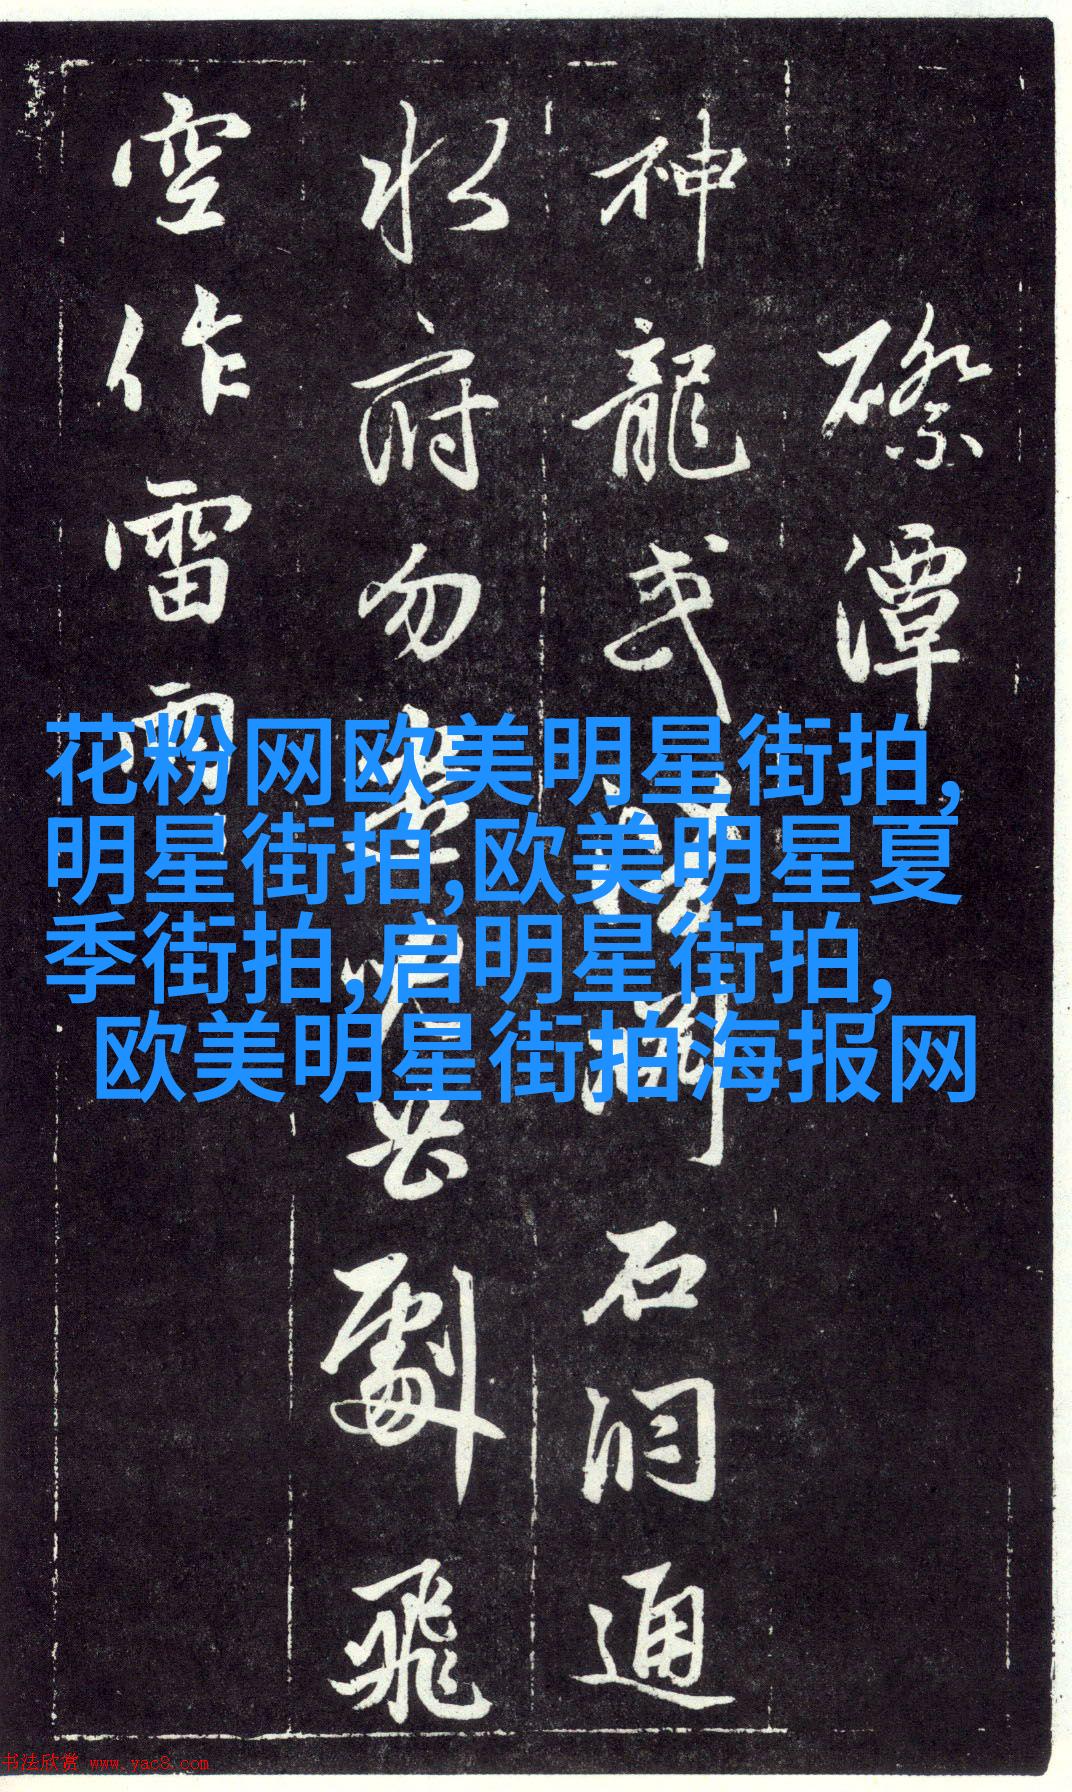 潭
神龍或石洞通
水府勿劇飛
空作雷雨
花粉网欧美明星街拍,
明星街拍,欧美明星夏
季街拍,启明星街拍,
欧美明星街拍海报网
书法欣赏 www.yac8.com